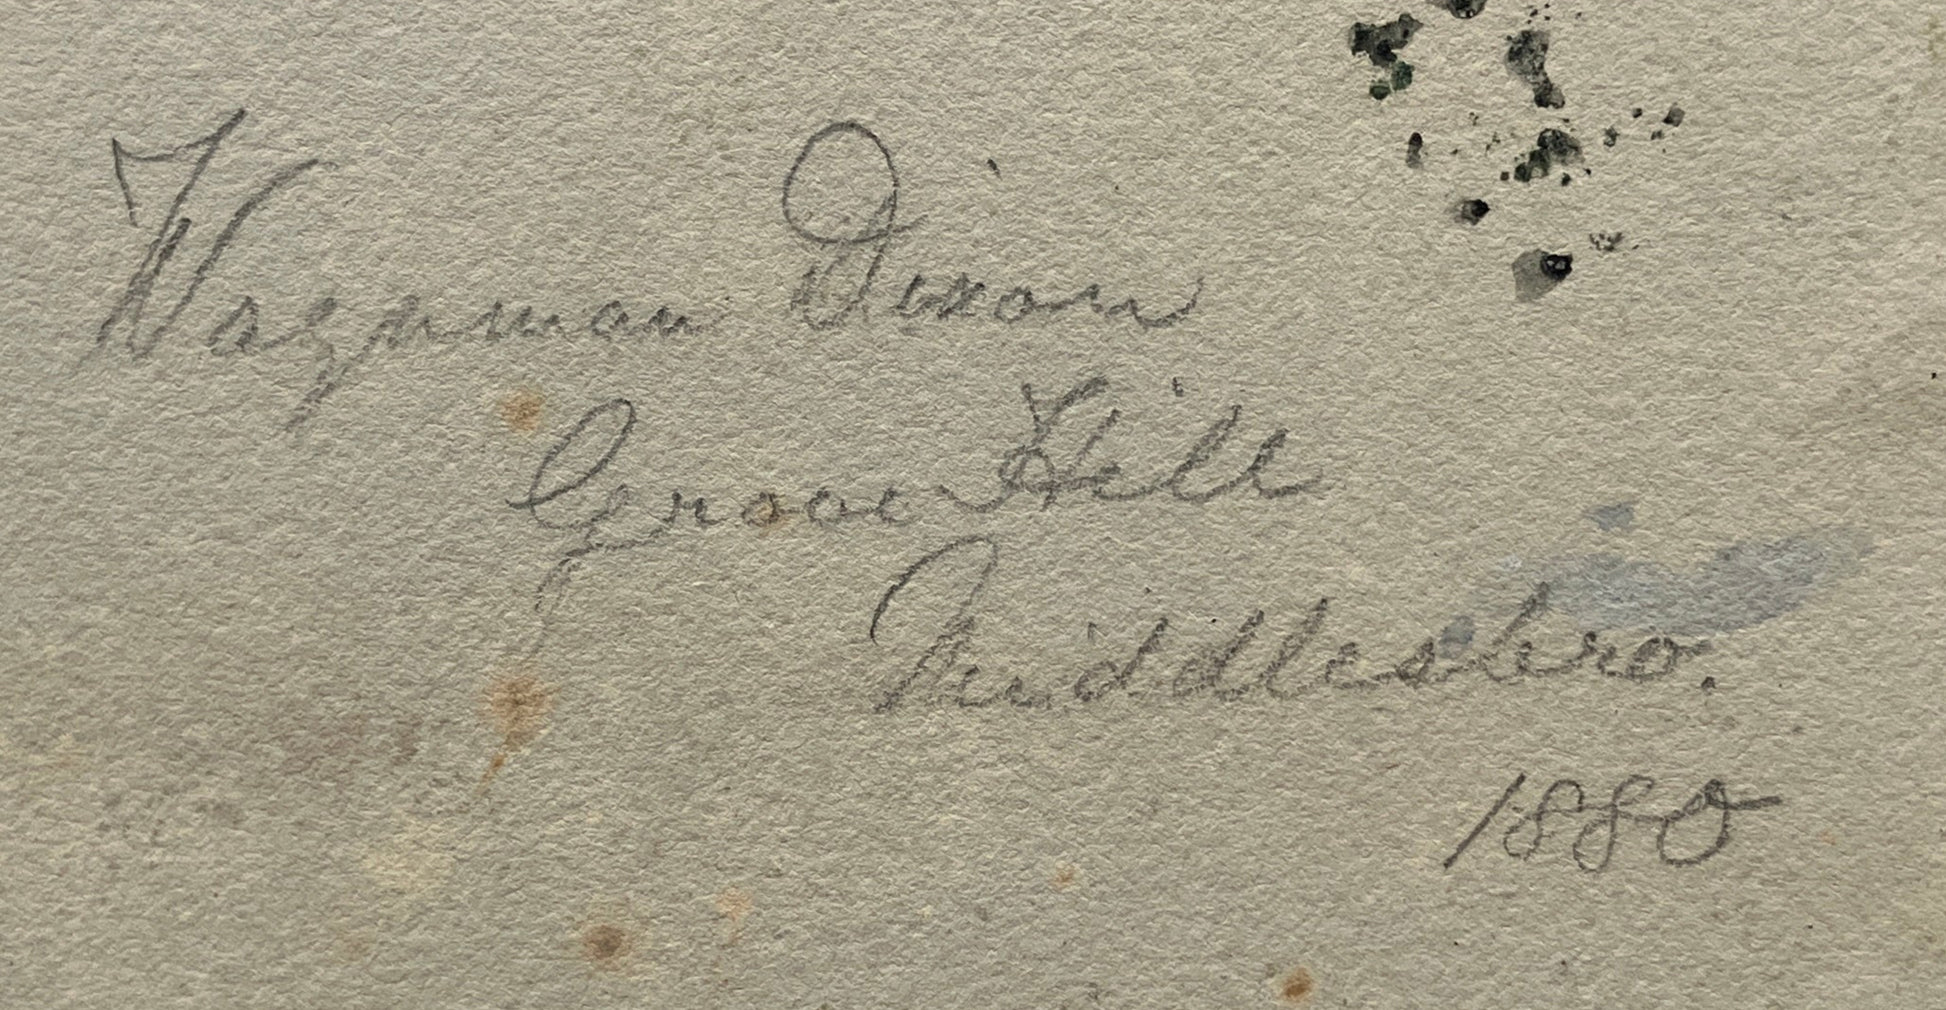 Waynman Dixon
Grove Hill
Middlesbro.
1880